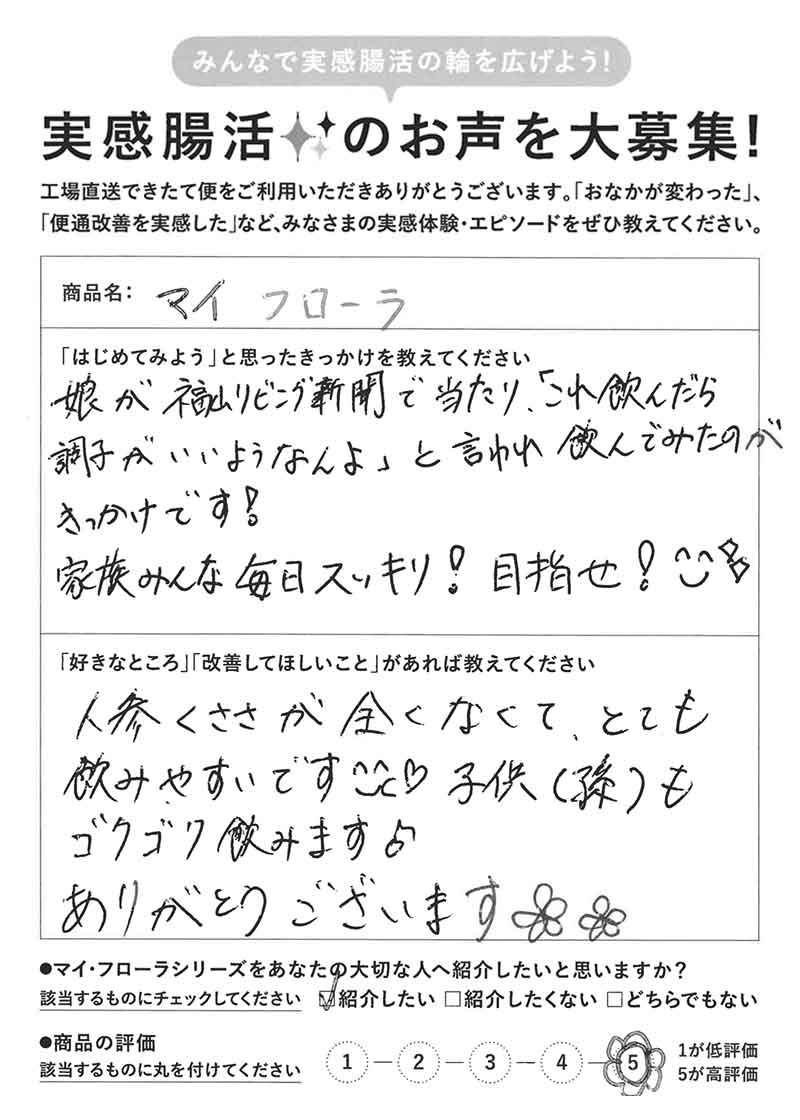 みんなで実感腸活の輪を広げよう!
実感腸活のお声を大募集!
工場直送できたて便をご利用いただきありがとうございます。「おなかが変わった」、
「便通改善を実感した」など、みなさまの実感体験・エピソードをぜひ教えてください。
商品名： マイ フローラ
「はじめてみよう」と思ったきっかけを教えてください
娘が福山リビング新聞で当たり、「これ飲んだら
調子がいいようなんよ」と言われ 飲んでみたのが
きっかけです!
家族みんな毎日スッキリ! 目指せ!
「好きなところ」「改善してほしいこと」があれば教えてください
人参くささが全くなくて、とても
飲みやすいです♡ 子供(孫)も
ゴクゴク飲みます♪
ありがとうございます
●マイ・フローラシリーズをあなたの大切な人へ紹介したいと思いますか?
該当するものにチェックしてください ☑紹介したい □紹介したくない □どちらでもない
●商品の評価
該当するものに丸を付けてください
1 2 3 4 5
1が低評価
5が高評価